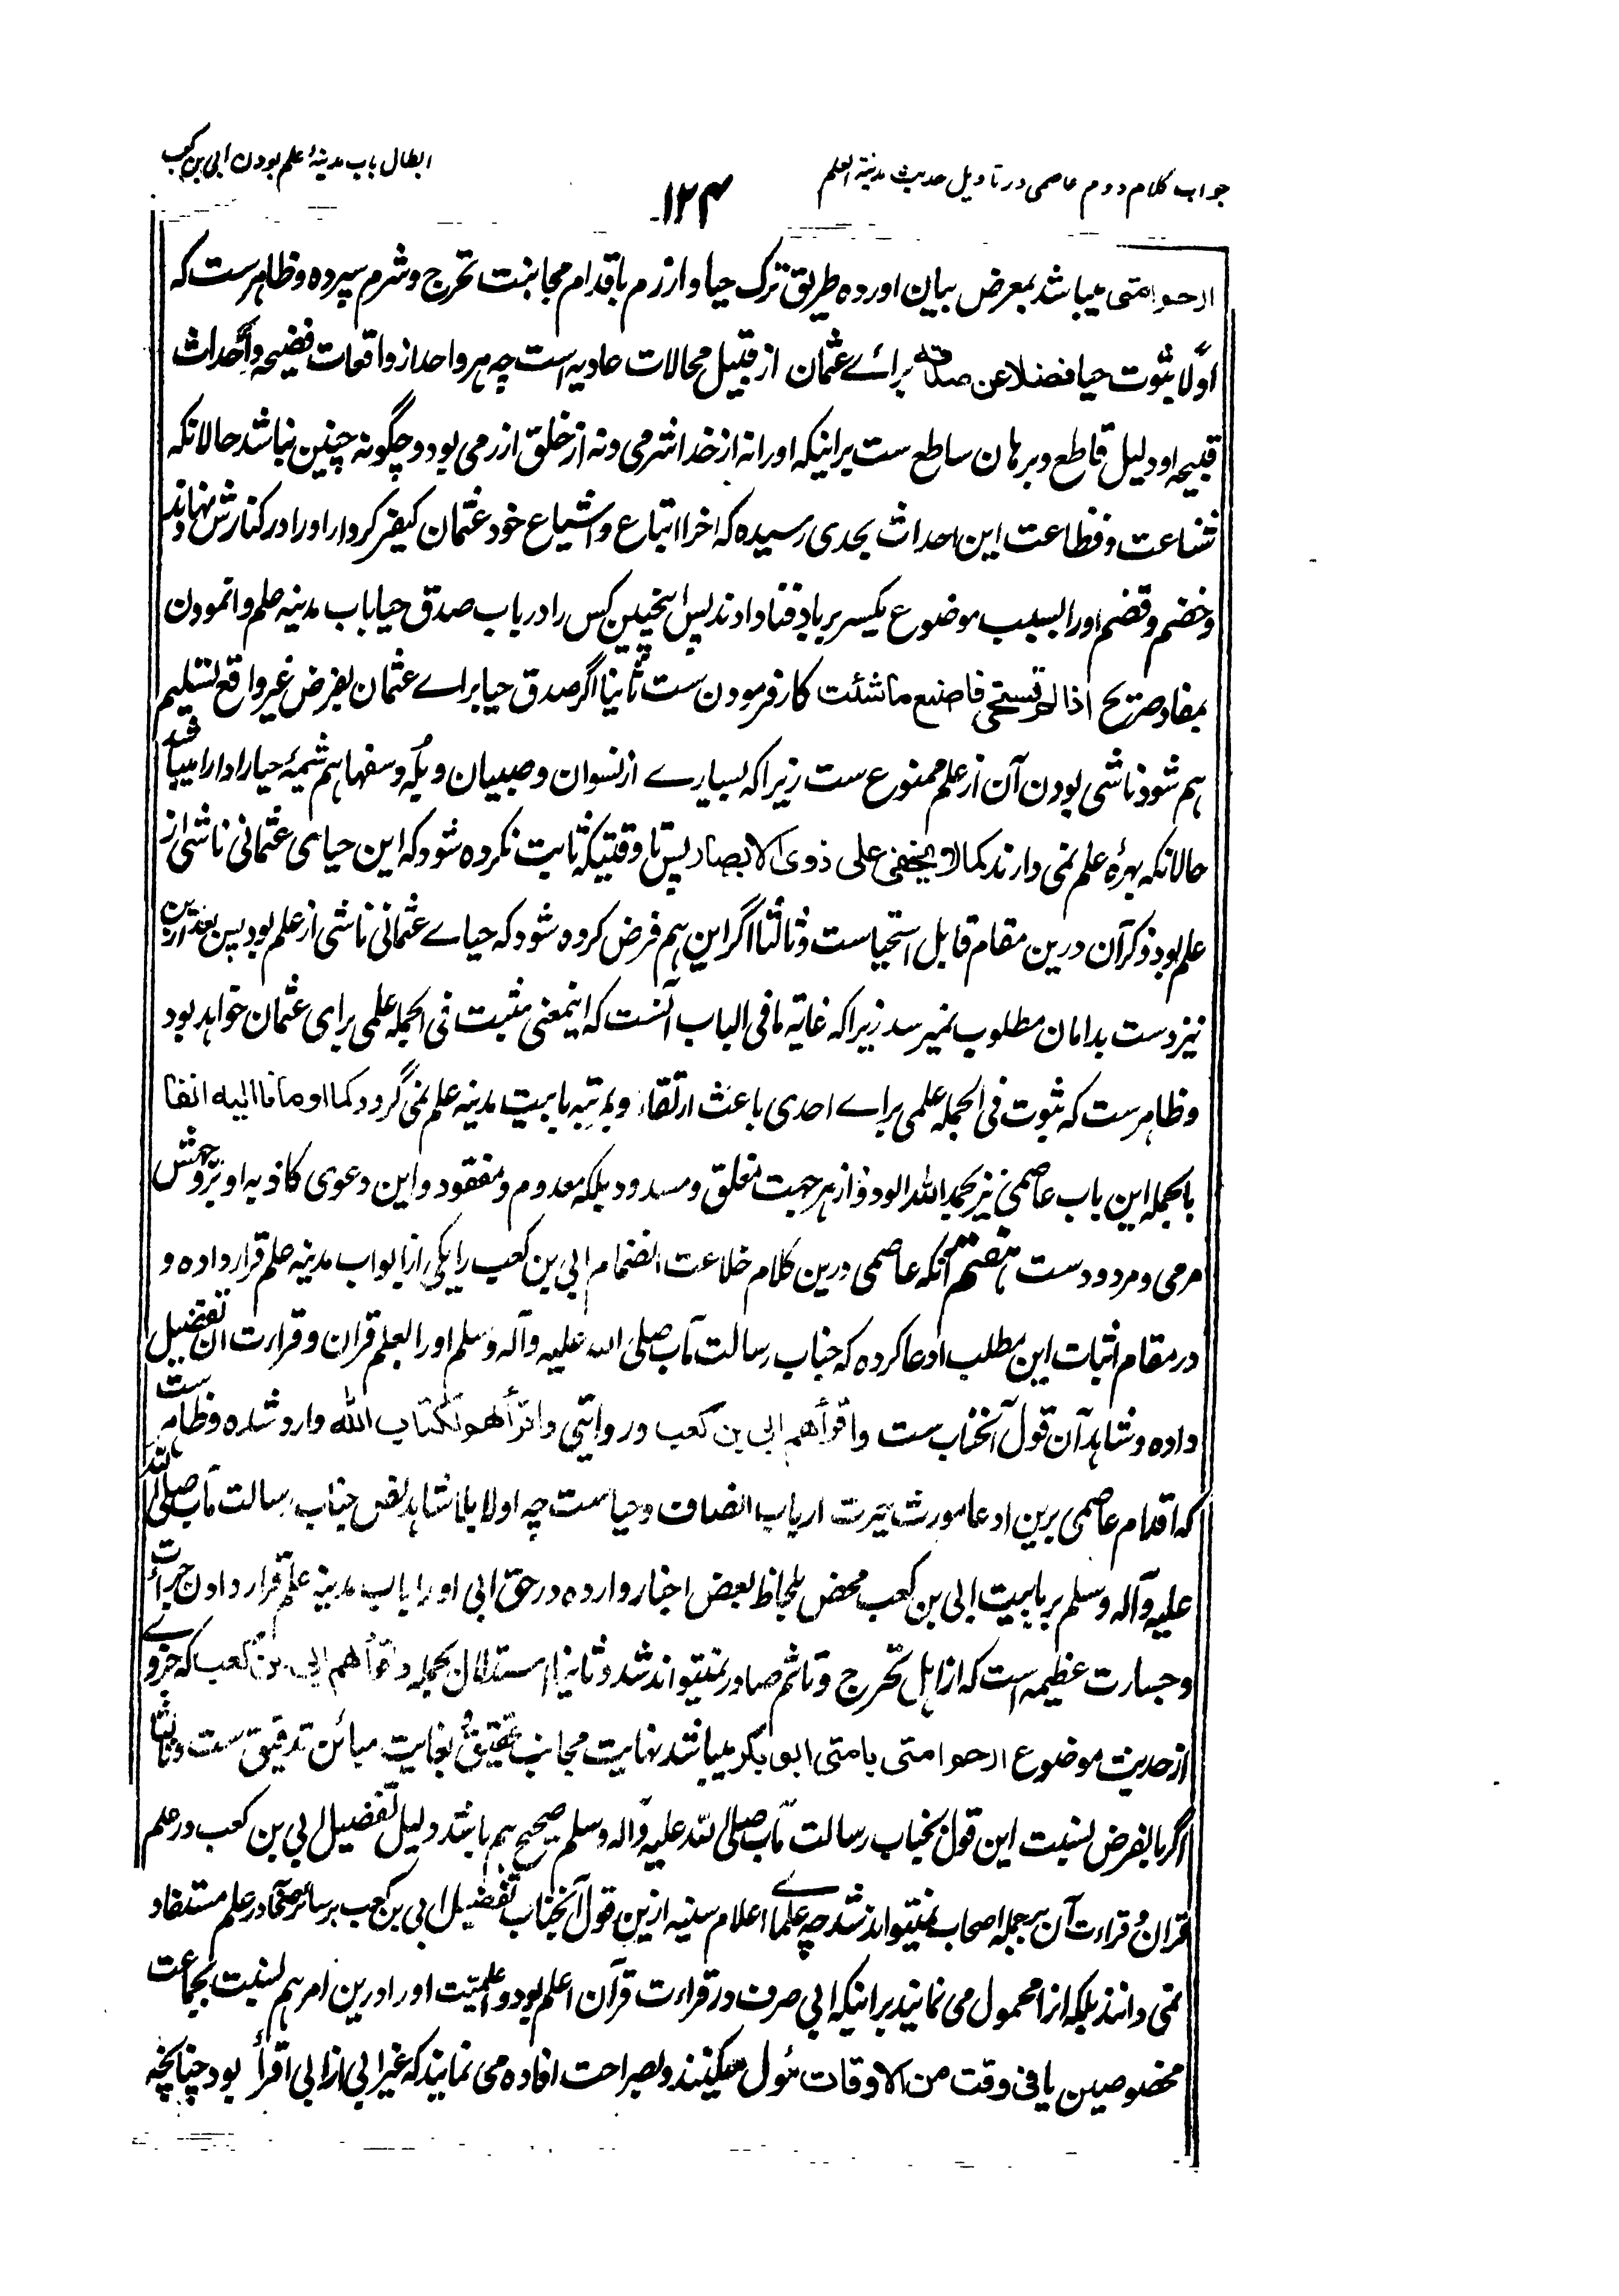 جواب کلام دوم عاصمی در تاویل حدیث مدینة العلم
۱۲۴
ابطال باب مدینهٔ علم بودن ابی بن کعب
ارحم امتی میباشد بمعرض بیان اورده طریق ترک حیا وازرم باقدام مجانبت تحرج وشرم سپرده وظاهرست که
اولًا ثبوت حیا فضلا عن صدقه برائے عثمان از قبیل محالات عادیه است چه هر واحد از واقعات فضیحه واحداث
قبیحه او دلیل قاطع وبرهان ساطع ست برانیکه او را نه از خدا شرمی ونه از خلق ازرمی بود وچگونه چنین نباشد حالانکه
شناعت وفظاعت این احداث بحدی رسیده که اخر اتباع واشیاع خود عثمان کیفر کردار او را در کنارش نهادند
وخضم وقضم او را بسبب موضوع یکسر برباد فنا دادند پس اینچنین کس را در باب صدق حیا باب مدینه علم وانمودن
بمفاد صریح اذا لم تستحی فاصنع ما شئت کار فرمودن ست ثانیا اگر صدق حیا براے عثمان بفرض غیر واقع تسلیم
هم شود ناشی بودن آن از علم ممنوع ست زیرا که بسیارے از نسوان وصبیان وبُله وسفها هم شمیهٔ حیا را دارا میباشند
حالانکه بهرهٔ علم نمی دارند کما لا یخفی علی ذوی الابصار پس تا وقتیکه ثابت نکرده شود که این حیای عثمانی ناشی از
علم بود ذکر آن درین مقام قابل استحیاست وثالثا اگر این هم فرض کرده شود که حیاے عثمانی ناشی از علم بود پس بعد ازین
نیز دست بدامان مطلوب نمیرسد زیرا که غایة ما فی الباب آنست که اینمعنی مثبت فی الجمله علمی برای عثمان خواهد بود
وظاهرست که ثبوت فی الجمله علمی براے احدی باعث ارتقاء وبمرتبه بابیت مدینه علم نمی گردد کما اومأنا الیه انفا
بالجمله این باب عاصمی نیز بحمد الله الودود از هر جهت مغلق ومسدود بلکه معدوم ومفقود واین دعوی کاذبه او بر وجهش
مرمی ومردودست هفتم آنکه عاصمی درین کلام خلاعت انضمام ابی بن کعب را یکی از ابواب مدینه علم قرار داده و
در مقام اثبات این مطلب ادعا کرده که جناب رسالت مآب صلی الله علیه وآله وسلم او را بعلم قران وقراءت ان تفضیل
داده وشاهد آن قول آنجناب ست واقرأهم ابی بن کعب ور وایتی واقرأهم لکتاب الله وارد شده وظاهر ست
که اقدام عاصمی برین ادعا مورث حیرت ارباب انصاف وحیاست چه اولا بلا شاهد نص جناب رسالت مآب صلی الله
علیه وآله وسلم بر بابیت ابی بن کعب محض بلحاظ بعض اخبار وارده در حق ابی او را باب مدینه علم قرار دادن جرات
وجسارت عظیمه است که از اهل تحرج وتأثم صادر نمیتواند شد وثانیا استدلال بجمله واقرأهم ابی بن کعب که جزوے
از حدیث موضوع ارحم امتی بامتی ابو بکر میباشد نهایت مجانب تحقیق وبغایت مبائن تدقیق ست وثالثا
اگر بالفرض نسبت این قول بجناب رسالت مآب صلی الله علیه وآله وسلم صحیح هم باشد دلیل تفضیل ابی بن کعب در علم
قران وقراءت آن بر جمله اصحاب نمیتواند شد چه علماے اعلام سنیه ازین قول آنجناب تفضیل ابی بن کعب بر سائر صحابه در علم مستفاد
نمی دانند بلکه انرا محمول می نمایند برانیکه ابی صرف در قراءت قرآن اعلم بود واعلمیّت او را درین امر هم بنسبت بجماعت
مخصوصین یا فی وقت من الاوقات مئول میکنند وبصراحت افاده می نمایند که غیر ابی از ابی اقرأ بود چنانچه